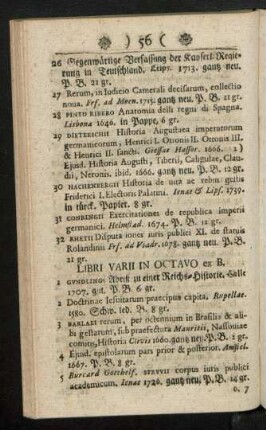 ( 56 )
26 Gegenwärtige Verfassung der Kayserl. Regie-
rung in Teutschland. Leips. 1713. gantz neu.
P. B. 21 gr.
27 Rerum, in Iudicio Camerali decisarum, collectio
noua. Frf. ad Moen. 1715. gantz neu. P. B. 21 gr.
28 PINTO RIBERO Anatomia delli regni di Spagna.
Lisbona 1646. in Pappe, 6 gr.
29 DIETERICHII Historia Augustaea imperatorum
germanicorum, Henrici I. Ottonis II. Ottonis III.
& Henrici II. sancti. Giessae Hassor. 1666. 2)
Ejusd. Historia Augusti, Tiberii, Caligulae, Clau-
dii, Neronis. ibid. 1666. gantz neu. P. B. 12 gr.
30 HACHENBERGII Historia de uita ac rebus gestis
Friderici I. Electoris Palatini. Ienae & Lips. 1739.
in türck. Papier. 8 gr.
31 CONRINGII Exercitationes de republica imperii
germanici. Helmstad. 1674. P. B. 12 gr.
32 RHETII Disputationes iuris publici XI. de statuis
Rolandinis Frf. ad Viadr. 1678. gantz neu. P. B.
21 gr.
LIBRI VARII IN OCTAVO ex B.
2 GUNDLINGS Abriß zu einer Reichs-Historie. Halle
1707. gut. P. B. 6 gr.
2 Doctrinae Iesuitarum praecipua capita. Rupellae.
1580. Schw. led. B. 8 gr.
3 BARLAEI rerum, per octennium in Brasilia & ali-
bi gestarum, sub praefectura Mauritii, Nassouiae
comitis, Historia Clivis 1660. gantz neu. P. B. 12 gr.
4 Ejusd. epistolarum pars prior & posterior. Amstel.
1667. P. B. 8 gr.
5 Burcard Gotthelf. STRVVII corpus iuris publici
academicum. Ienae 1726. gantz neu, P. B. 14 gr.
6. 7